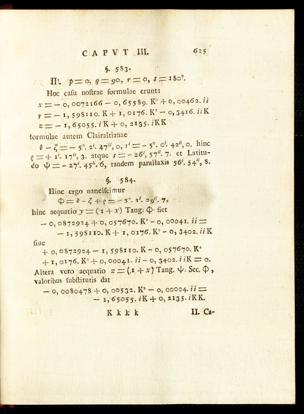 CAPVT III. 625
§. 583.
IIº. p=0, q=90, r=0, s=180°.
Hoc casu nostrae formulae erunt:
x=−0,0072166−0,65589.K²+0,00462.ii
y=−1,598110.K+1,0176.K³−0,3416.iiK
z=−1,65055.iK+0,2135.iKK
formulae autem Clairaltianae
hinc
atque et Latitu-
do ψ=−27'.45'',6, tandem parallaxis 56'.54'',8.
§. 584.
Hinc ergo nanciscimur
hinc aequatio y=(1+x) Tang. Φ fiet
−0,0872914+0,057670.K²−0,00041.ii=
−1,598110.K+1,0176.K³−0,3402.iiK
siue
+0,0872924−1,598110.K−0,057670.K²
+1,0176.K³+0,00041.ii−0,3402.iiK=0.
Altera vero aequatio z=(1+x) Tang. ψ. Sec. Φ,
valoribus substitutis dat
−0,0080478+0,00532.K²−0,00004.ii=
−1,65055.iK+0,2135.iKK.
K k k k II. Ca-